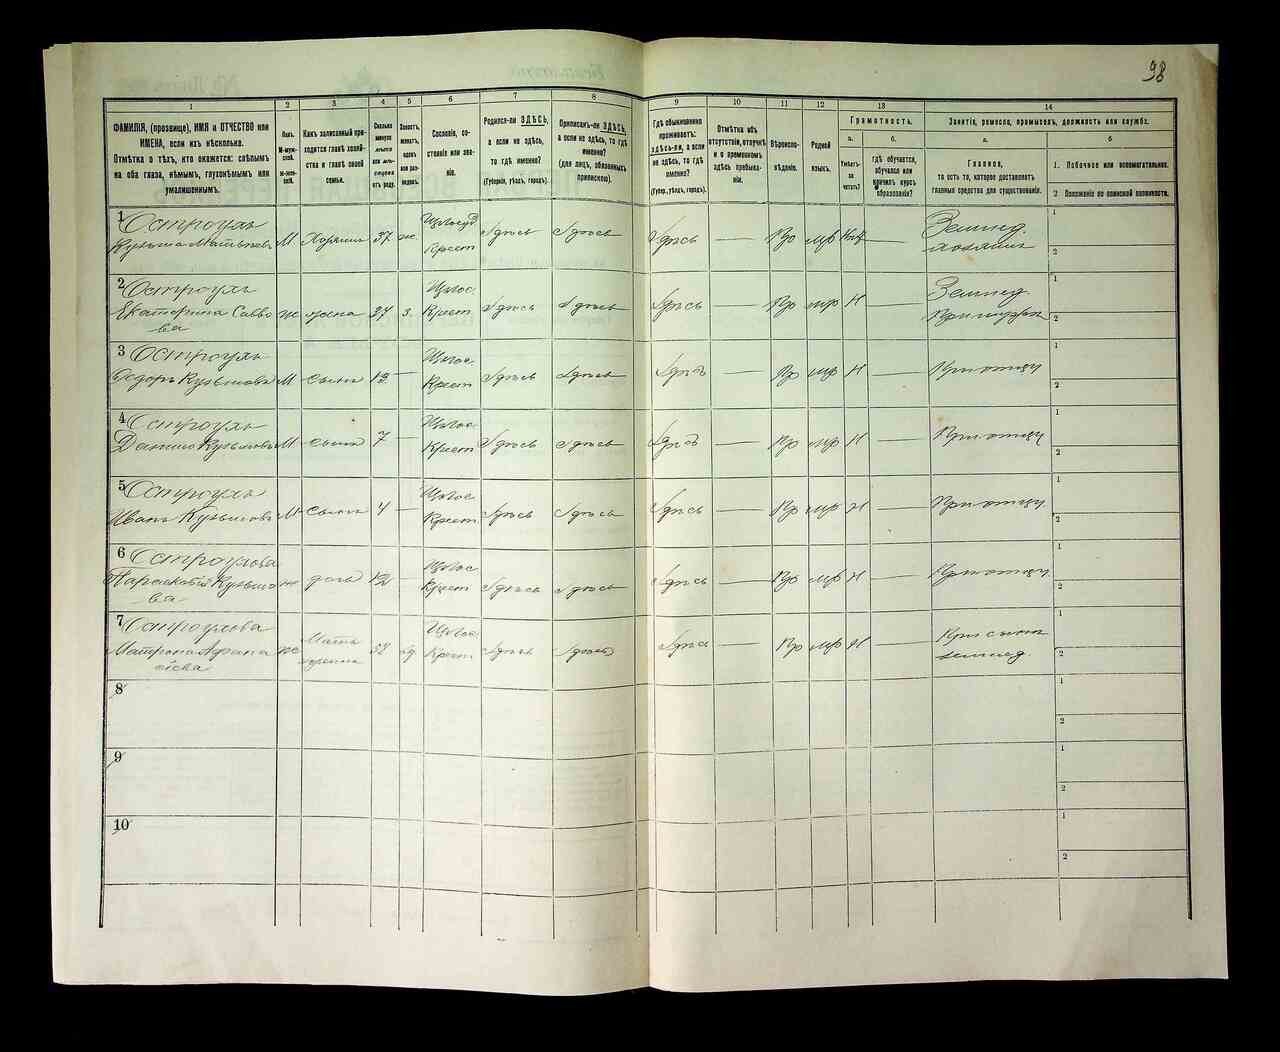 98
1 2 3 4 5 6 7 8 9 10 11 12 13 14
ФАМИЛІЯ, (прозвище), ИМЯ и ОТЧЕСТВО или
ИМЕНА, если ихъ нѣсколько.
Отмѣтка о тѣхъ, кто окажется: слѣпымъ
на оба глаза, нѣмымъ, глухонѣмымъ или
умалишеннымъ.
Полъ.
М-муж-
ской.
Ж-жен-
скій.
Какъ записанный при-
ходится главѣ хозяй-
ства и главѣ своей
семьи.
Сколько
минуло
лѣтъ
или мѣ-
сяцевъ
отъ роду.
Холостъ,
женатъ,
вдовъ
или раз-
веденъ.
Сословіе, со-
стояніе или зва-
ніе.
Родился-ли ЗДѢСЬ,
а если не здѣсь,
то гдѣ именно?
(Губернія, уѣздъ, городъ).
Приписанъ-ли ЗДѢСЬ,
а если не здѣсь, то гдѣ
именно?
(для лицъ, обязанныхъ
припискою).
Гдѣ обыкновенно
проживаетъ:
здѣсь-ли, а если
не здѣсь, то гдѣ
именно?
(Губер., уѣздъ, городъ).
Отмѣтка объ
отсутствіи, отлучкѣ
и о временномъ
здѣсь пребыва-
ніи.
Вѣроиспо-
вѣданіе.
Родной
языкъ.
Грамотность.
а.
Умѣетъ-
ли
читать?
б.
гдѣ обучается,
обучался или
кончилъ курсъ
образованія?
Занятіе, ремесло, промыселъ, должность или служба.
а.
Главное,
то есть то, которое доставляетъ
главныя средства для существованія.
б
1. Побочное или вспомогательное.
2 Положеніе по воинской повинности.
1 Остроухъ
М 37 Крест Здѣсь Здѣсь Здѣсь — Пр мр —
Землед.
хозяинъ
1
2
2 Остроухъ
Екатерина Савво
ва
ж жена 37 з. Крест Здѣсь Здѣсь Здѣсь — Пр мр Н —
Землед.
1
2
3 Остроухъ
Федоръ Кузьмовъ М сынъ — Крест Здѣсь Здѣсь Здѣсь — Пр мр Н —
При отцу
1
2
4 Остроухъ
Данило Кузьмовъ М сынъ 7 — Крест Здѣсь Здѣсь — Пр мр Н —
При отцу
1
2
5 Остроухъ
Иванъ Кузьмовъ М сынъ 4 — Крест Здѣсь Здѣсь Здѣсь — Пр мр Н —
При отцу
1
2
6 Остроухова
Парасковія Кузьмо
ва
ж дочь 12 — Крест Здѣсь Здѣсь Здѣсь — Пр мр Н —
При отцу
1
2
7 Остроухова
Матрона Афана
сіева
ж Мать 58 вд Крест Здѣсь Здѣсь — Пр мр Н —
При сынѣ
землед.
1
2
8
1
2
9
1
2
10
1
2